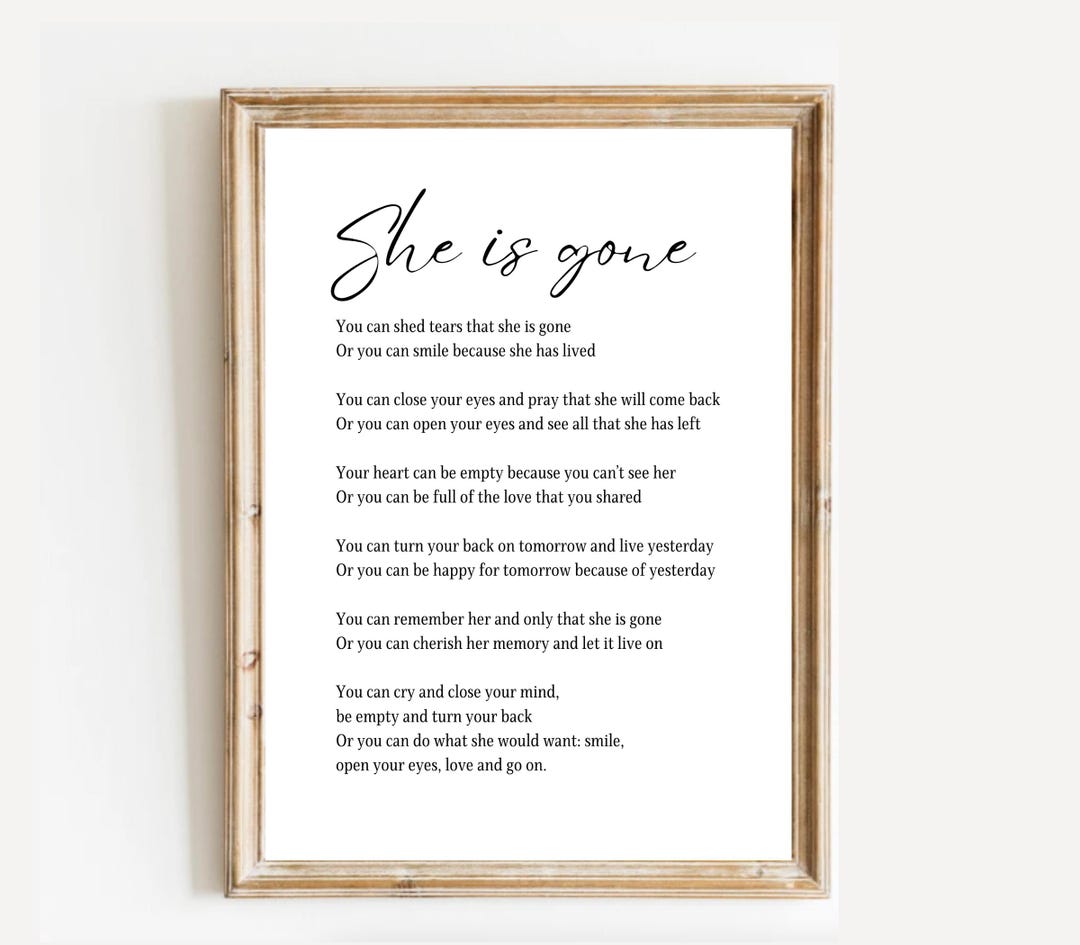 She is gone
You can shed tears that she is gone
Or you can smile because she has lived
You can close your eyes and pray that she will come back
Or you can open your eyes and see all that she has left
Your heart can be empty because you can't see her
Or you can be full of the love that you shared
You can turn your back on tomorrow and live yesterday
Or you can be happy for tomorrow because of yesterday
You can remember her and only that she is gone
Or you can cherish her memory and let it live on
You can cry and close your mind,
be empty and turn your back
Or you can do what she would want: smile,
open your eyes, love and go on.